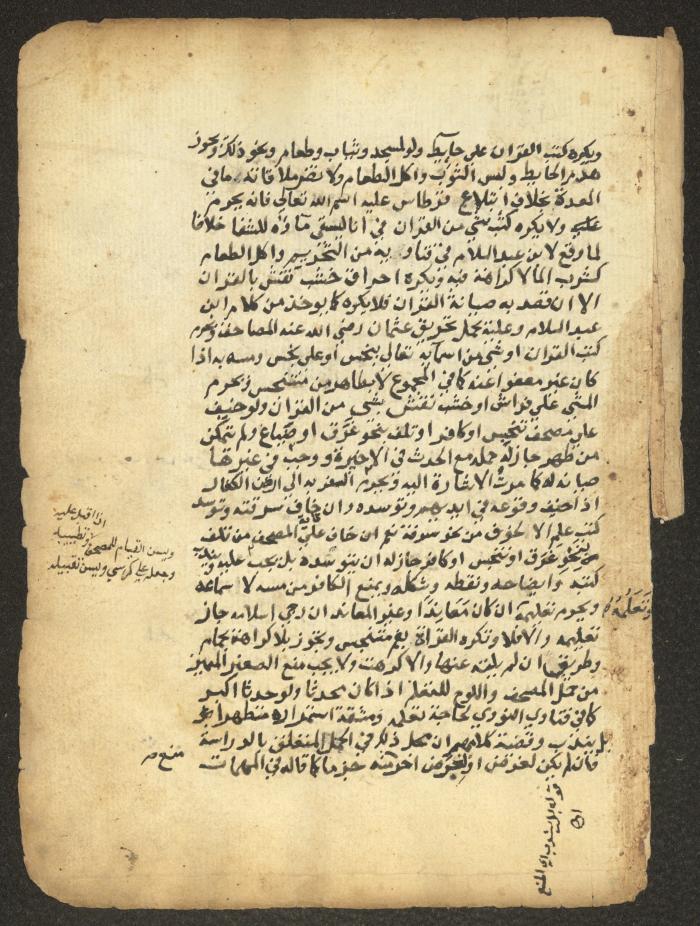 ويكره كتب القران على حايط ولو لمسجد وثياب وطعام ونحو ذلك ويجوز
هدم الحايط ولبس الثوب واكل الطعام ولا تضر ملاقاته ما في
المعدة بخلاف ابتلاع قرطاس عليه اسم الله تعالى فانه يحرم
عليه ولا يكره كتب شي من القران في انا ليسقى ماؤه للشفا خلافا
لما وقع لابن عبد السلام في فتاويه من التحريم واكل الطعام
كشرب الما لا كراهة فيه ويكره احراق خشب نقش بالقران
الا ان قصد به صيانة القران فلا يكره كما يوخذ من كلام ابن
عبد السلام وعليه يحمل تحريق عثمان رضي الله عنه المصاحف ويحرم
كتب القران او شي من اسمايه تعالى بنجس او على نجس ومسه به اذا
كان غير معفو عنه كما في المجموع لا بطاهر من متنجس ويحرم
المشي على فراش او خشب نقش بشي من القران ولو خيف
على مصحف تنجس او كافر او تلف بنحو غرق او ضياع ولم يتمكن
من تطهر جاز له حمله مع الحدث في الاخيرة ووجب في غيرها
صيانة له كما مرت الاشارة اليه ويحرم السفر به الى ارض الكفار
اذا خيف وقوعه في ايديهم وتوسده وان خاف سرقته وتوسد
كتب علم الا لخوف من نحو سرقة نعم ان خاف على المصحف من تلف
بنحو غرق او تنجس او كافر جاز له ان يتوسده بل يجب عليه ويندب
كتبه وايضاحه ونقطه وشكله ويمنع الكافر من مسه لا سماعه
ويحرم تعليمه ان كان معاندا وغير المعاند ان رجي اسلامه جاز
وتعلمه
تعليمه والا فلا وتكره القراة بفم متنجس وتجوز بلا كراهة بحمام
وطريق ان لم يلته عنها والا كرهت ولا يجب منع الصغير المميز
من حمل المصحف واللوح للتعلم اذا كان محدثا ولو حدثا اكبر
كما في فتاوي النووي لحاجة تعلمه ومشقة استمراره متطهرا بل
يندب وقضية كلامهم ان محل ذلك في الحمل المتعلق بالدراسة
فان لم يكن لغرض او لغرض اخر منع منه جزما كما قاله في المهمات
ويسن القيام للمصحف
وجعله على كرسي ويسن تقبيله